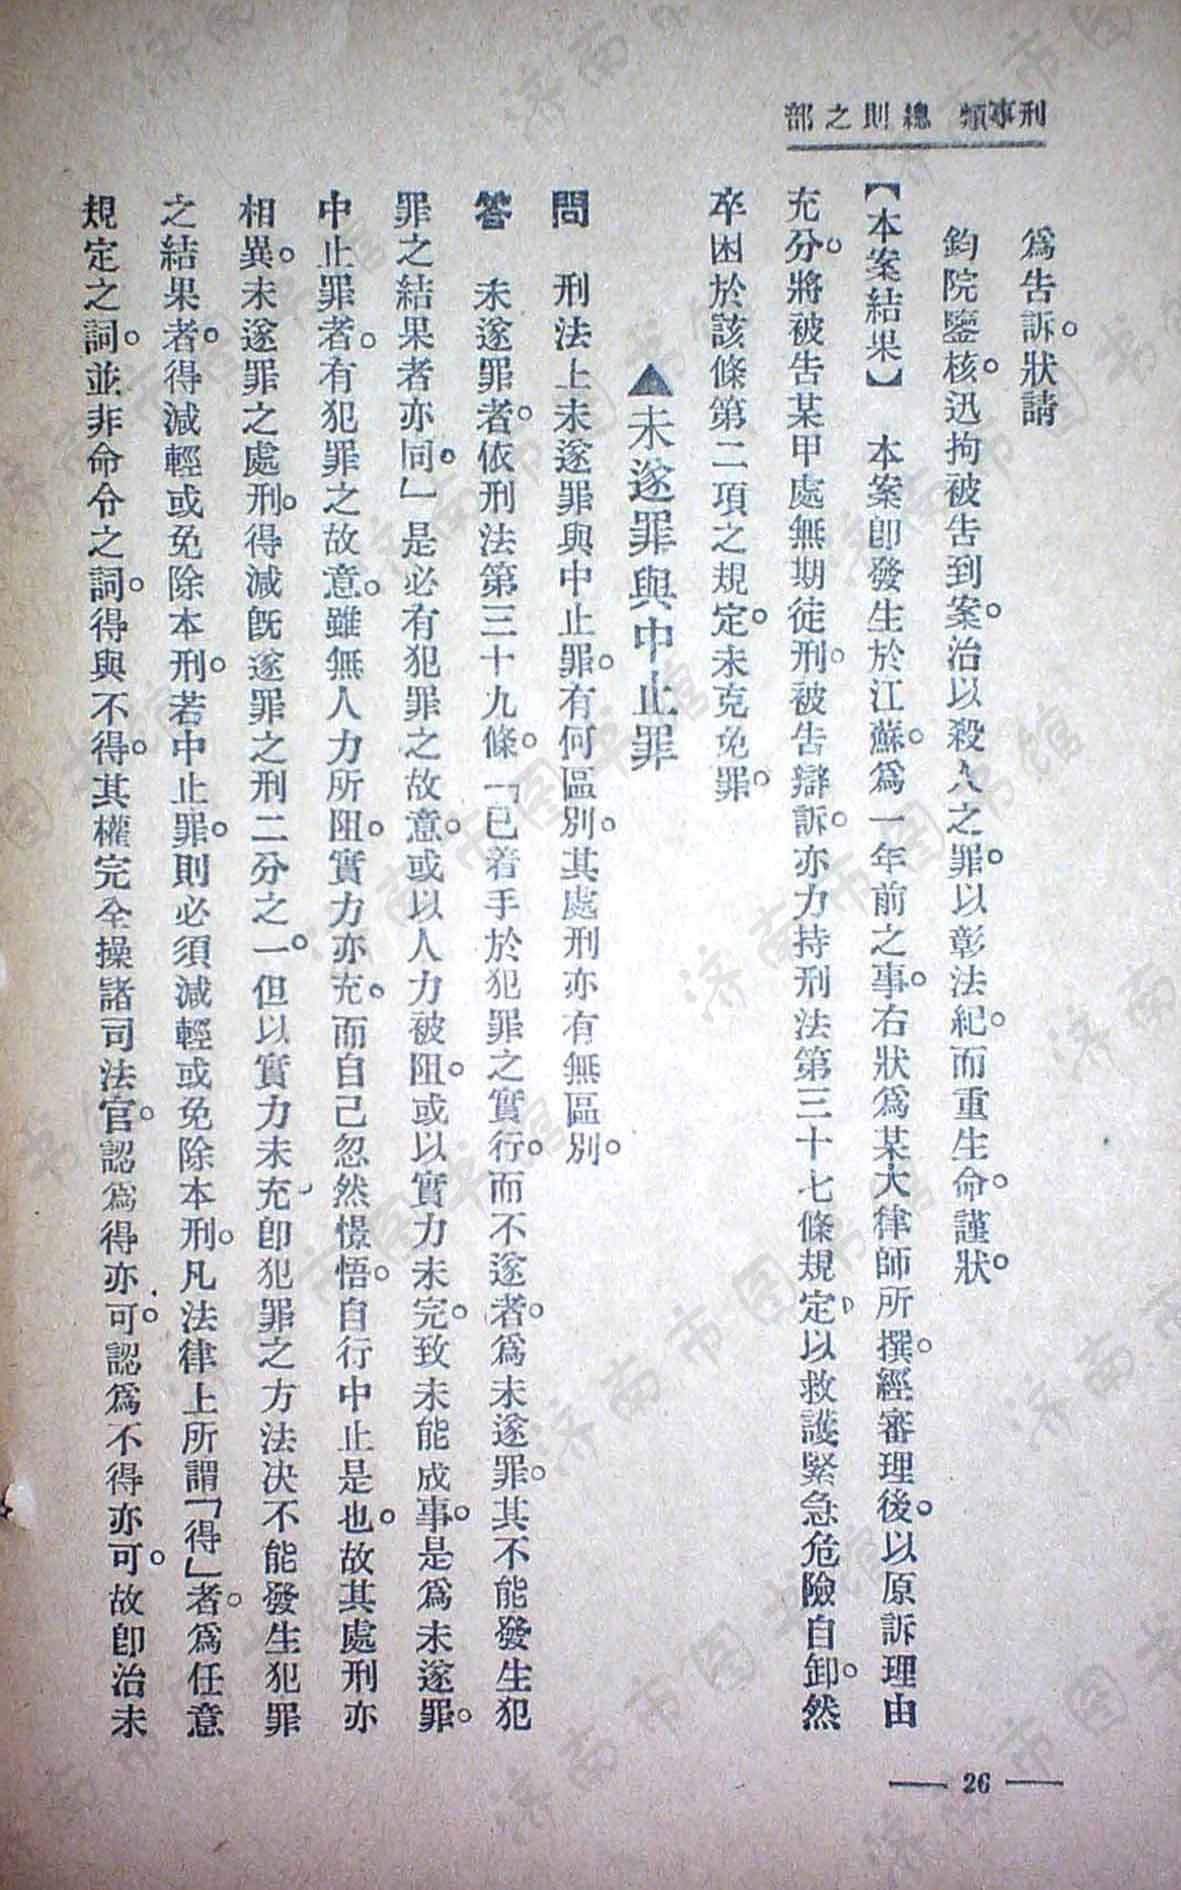 刑事類 總則之部
爲告訴。狀請
鈞院鑒核。迅拘被告到案。治以殺人之罪。以彰法紀。而重生命。謹狀。
【本案結果】 本案卽發生於江蘇。爲一年前之事。右狀爲某大律師所撰。經審理後。以原訴理由
充分。將被告某甲處無期徒刑。被告辯訴。亦力持刑法第三十七條規定、以救護緊急危險自卸。然
卒困於該條第二項之規定。未克免罪。
▲未遂罪與中止罪
問 刑法上未遂罪與中止罪。有何區別。其處刑亦有無區別。
答 未遂罪者。依刑法第三十九條。「已着手於犯罪之實行。而不遂者。爲未遂罪。其不能發生犯
罪之結果者亦同。」是必有犯罪之故意。或以人力被阻。或以實力未完。致未能成事。是爲未遂罪。
中止罪者。有犯罪之故意。雖無人力所阻。實力亦充。而自己忽然憬悟。自行中止是也。故其處刑亦
相異。未遂罪之處刑。得減旣遂罪之刑二分之一。但以實力未充、卽犯罪之方法決不能發生犯罪
之結果者。得減輕或免除本刑。若中止罪。則必須減輕或免除本刑。凡法律上所謂「得」者。爲任意
規定之詞。並非命令之詞。得與不得。其權完全操諸司法官。認爲得亦可。認爲不得亦可。故卽治未
— 26 —
济南市图书馆